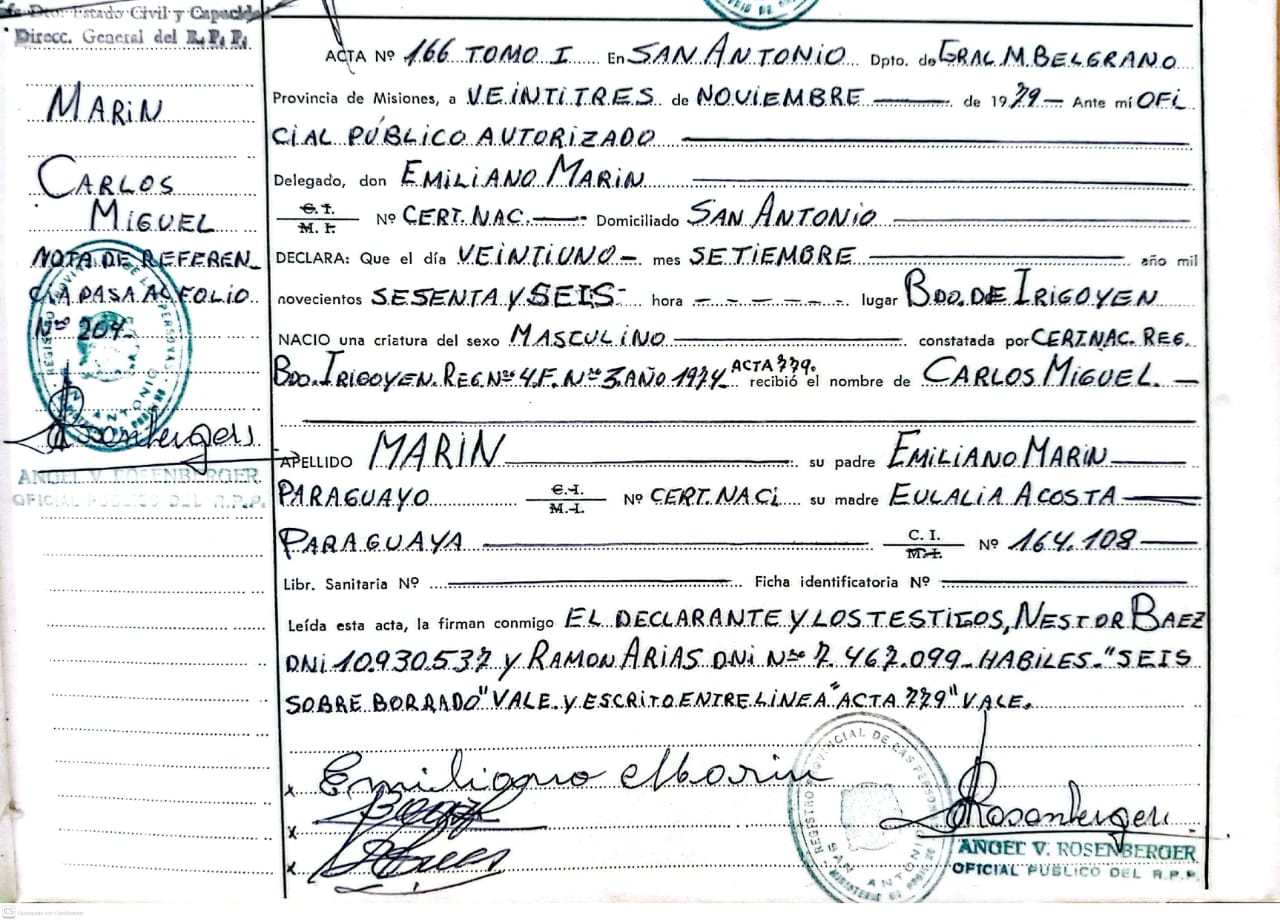 Dto. Estado Civil y Capacidad
Direcc. General del R. P. P.
MARIN
CARLOS
MIGUEL
NOTA DE REFEREN_
CIA PASA AL FOLIO
Nro 204.
ANGEL V. ROSENBERGER
OFICIAL PUBLICO DEL R.P.P.
ACTA Nº 166 TOMO I En SAN ANTONIO Dpto. de GRAL M. BELGRANO
Provincia de Misiones, a VEINTITRES de NOVIEMBRE de 1979 Ante mí OFI
CIAL PÚBLICO AUTORIZADO
Delegado, don EMILIANO MARIN
C. I. M. I. Nº CERT. NAC. Domiciliado SAN ANTONIO
DECLARA: Que el día VEINTIUNO mes SETIEMBRE año mil
novecientos SESENTA Y SEIS hora - - - - - - lugar BDO. DE IRIGOYEN
NACIO una criatura del sexo MASCULINO constatada por CERT.NAC. REG.
BDO. IRIGOYEN. REG. Nro 4. F. Nro 3. AÑO 1974 ACTA 779. recibió el nombre de CARLOS MIGUEL.
APELLIDO MARIN su padre EMILIANO MARIN
PARAGUAYO C.I. M.I. Nº CERT. NACI su madre EULALIA ACOSTA
PARAGUAYA C. I. M.I. Nº 164.108
Libr. Sanitaria Nº Ficha identificatoria Nº
Leída esta acta, la firman conmigo EL DECLARANTE Y LOS TESTIGOS, NESTOR BAEZ
DNI 10.930.537 Y RAMON ARIAS DNI Nro 7.467.099_HABILES."SEIS
SOBRE BORRADO" VALE. Y ESCRITO ENTRE LINEA "ACTA 779" VALE.
x Emiliano Marin
x
x
Rosenberger
REGISTRO PROVINCIAL DE LAS PERSONAS
SAN ANTONIO
ANGEL V. ROSENBERGER
OFICIAL PUBLICO DEL R.P.P.
CS Escaneado con CamScanner